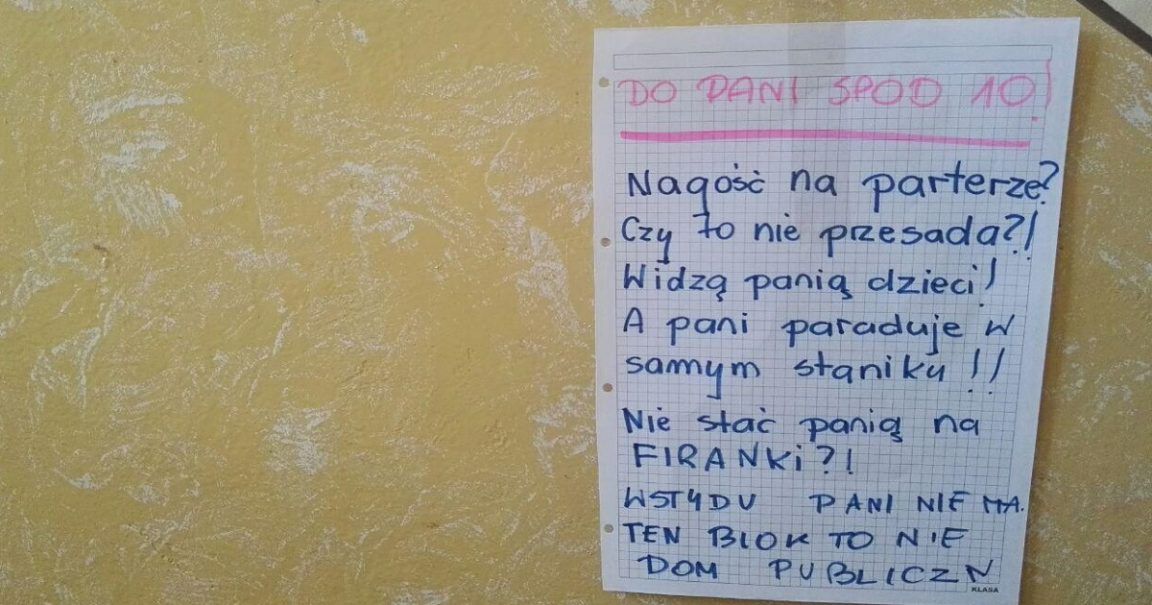 DO PANI SPOD 10!
Nagość na parterze?
Czy to nie przesada?!
Widzą panią dzieci!
A pani paraduje w
samym staniku!!
Nie stać panią na
FIRANKi?!
WSTYDU PANI NIE MA.
TEN BLOK TO NIE
DOM PUBLICZN
KLASA